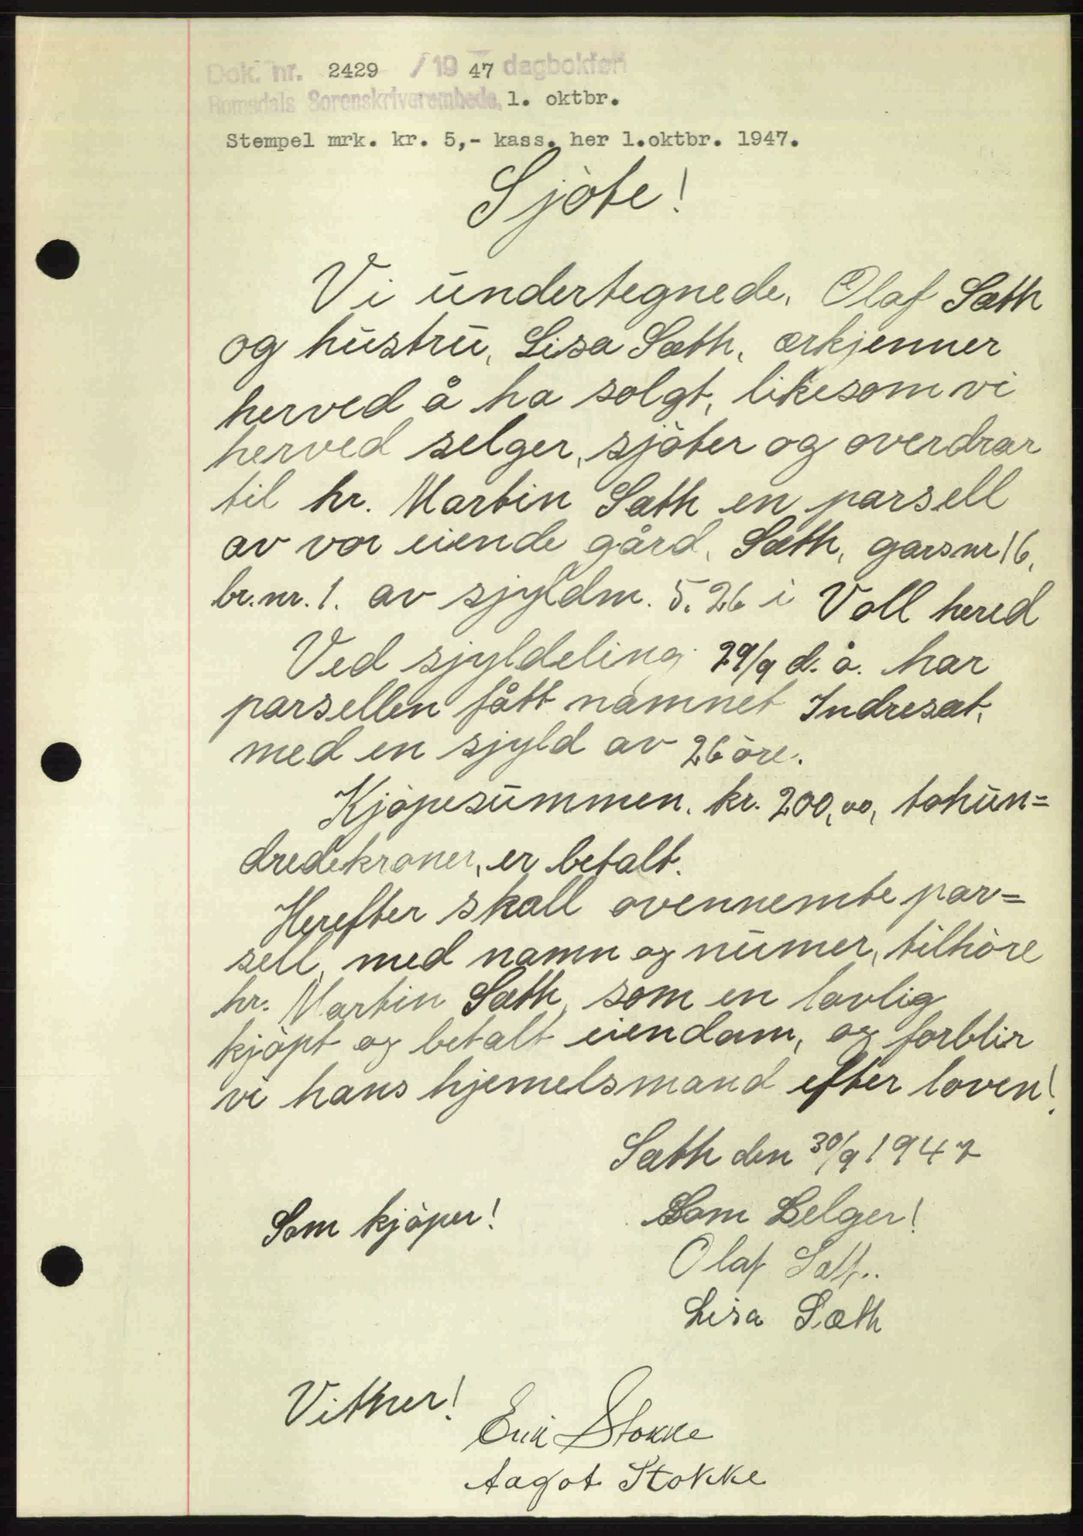 Dok. nr. 2429 / 19 47 dagbokfen
Romsdals Sorenskriverembede, 1. oktbr.
Stempel mrk. kr. 5,- kass. her 1.oktbr. 1947.
Sjöte!
Vi undertegnede, Olaf Sæth
og hustru, Lisa Sæth, ærkjenner
herved å ha solgt, likesom vi
herved selger, sjöter og overdrar
til hr. Martin Sæth en parsell
av vor eiende gård, Sæth, garsnr 16,
br.nr. 1. av sjyldm. 5.26 i Voll hered
Ved sjyldeling 29/9 d. å. har
parsellen fått namnet Indresæt,
med en sjyld av 26 öre.
Kjöpesummen, kr. 200,00, tohun=
dredekroner, er betalt.
Herefter skall ovennemte par=
sell, med namn og numer, tilhöre
hr. Martin Sæth, som en lovlig
kjöpt og betalt eiendam, og forblir
vi hans hjemelsmand efter loven!
Sæth den 30/9 1947
Som kjöper! Som Selger!
Olaf Sæth.
Lisa Sæth
Vitner!
Erik Stokke
Aagot Stokke